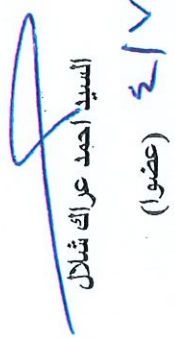 السيد احمد عراك شلال
(عضوا)
٤/٧